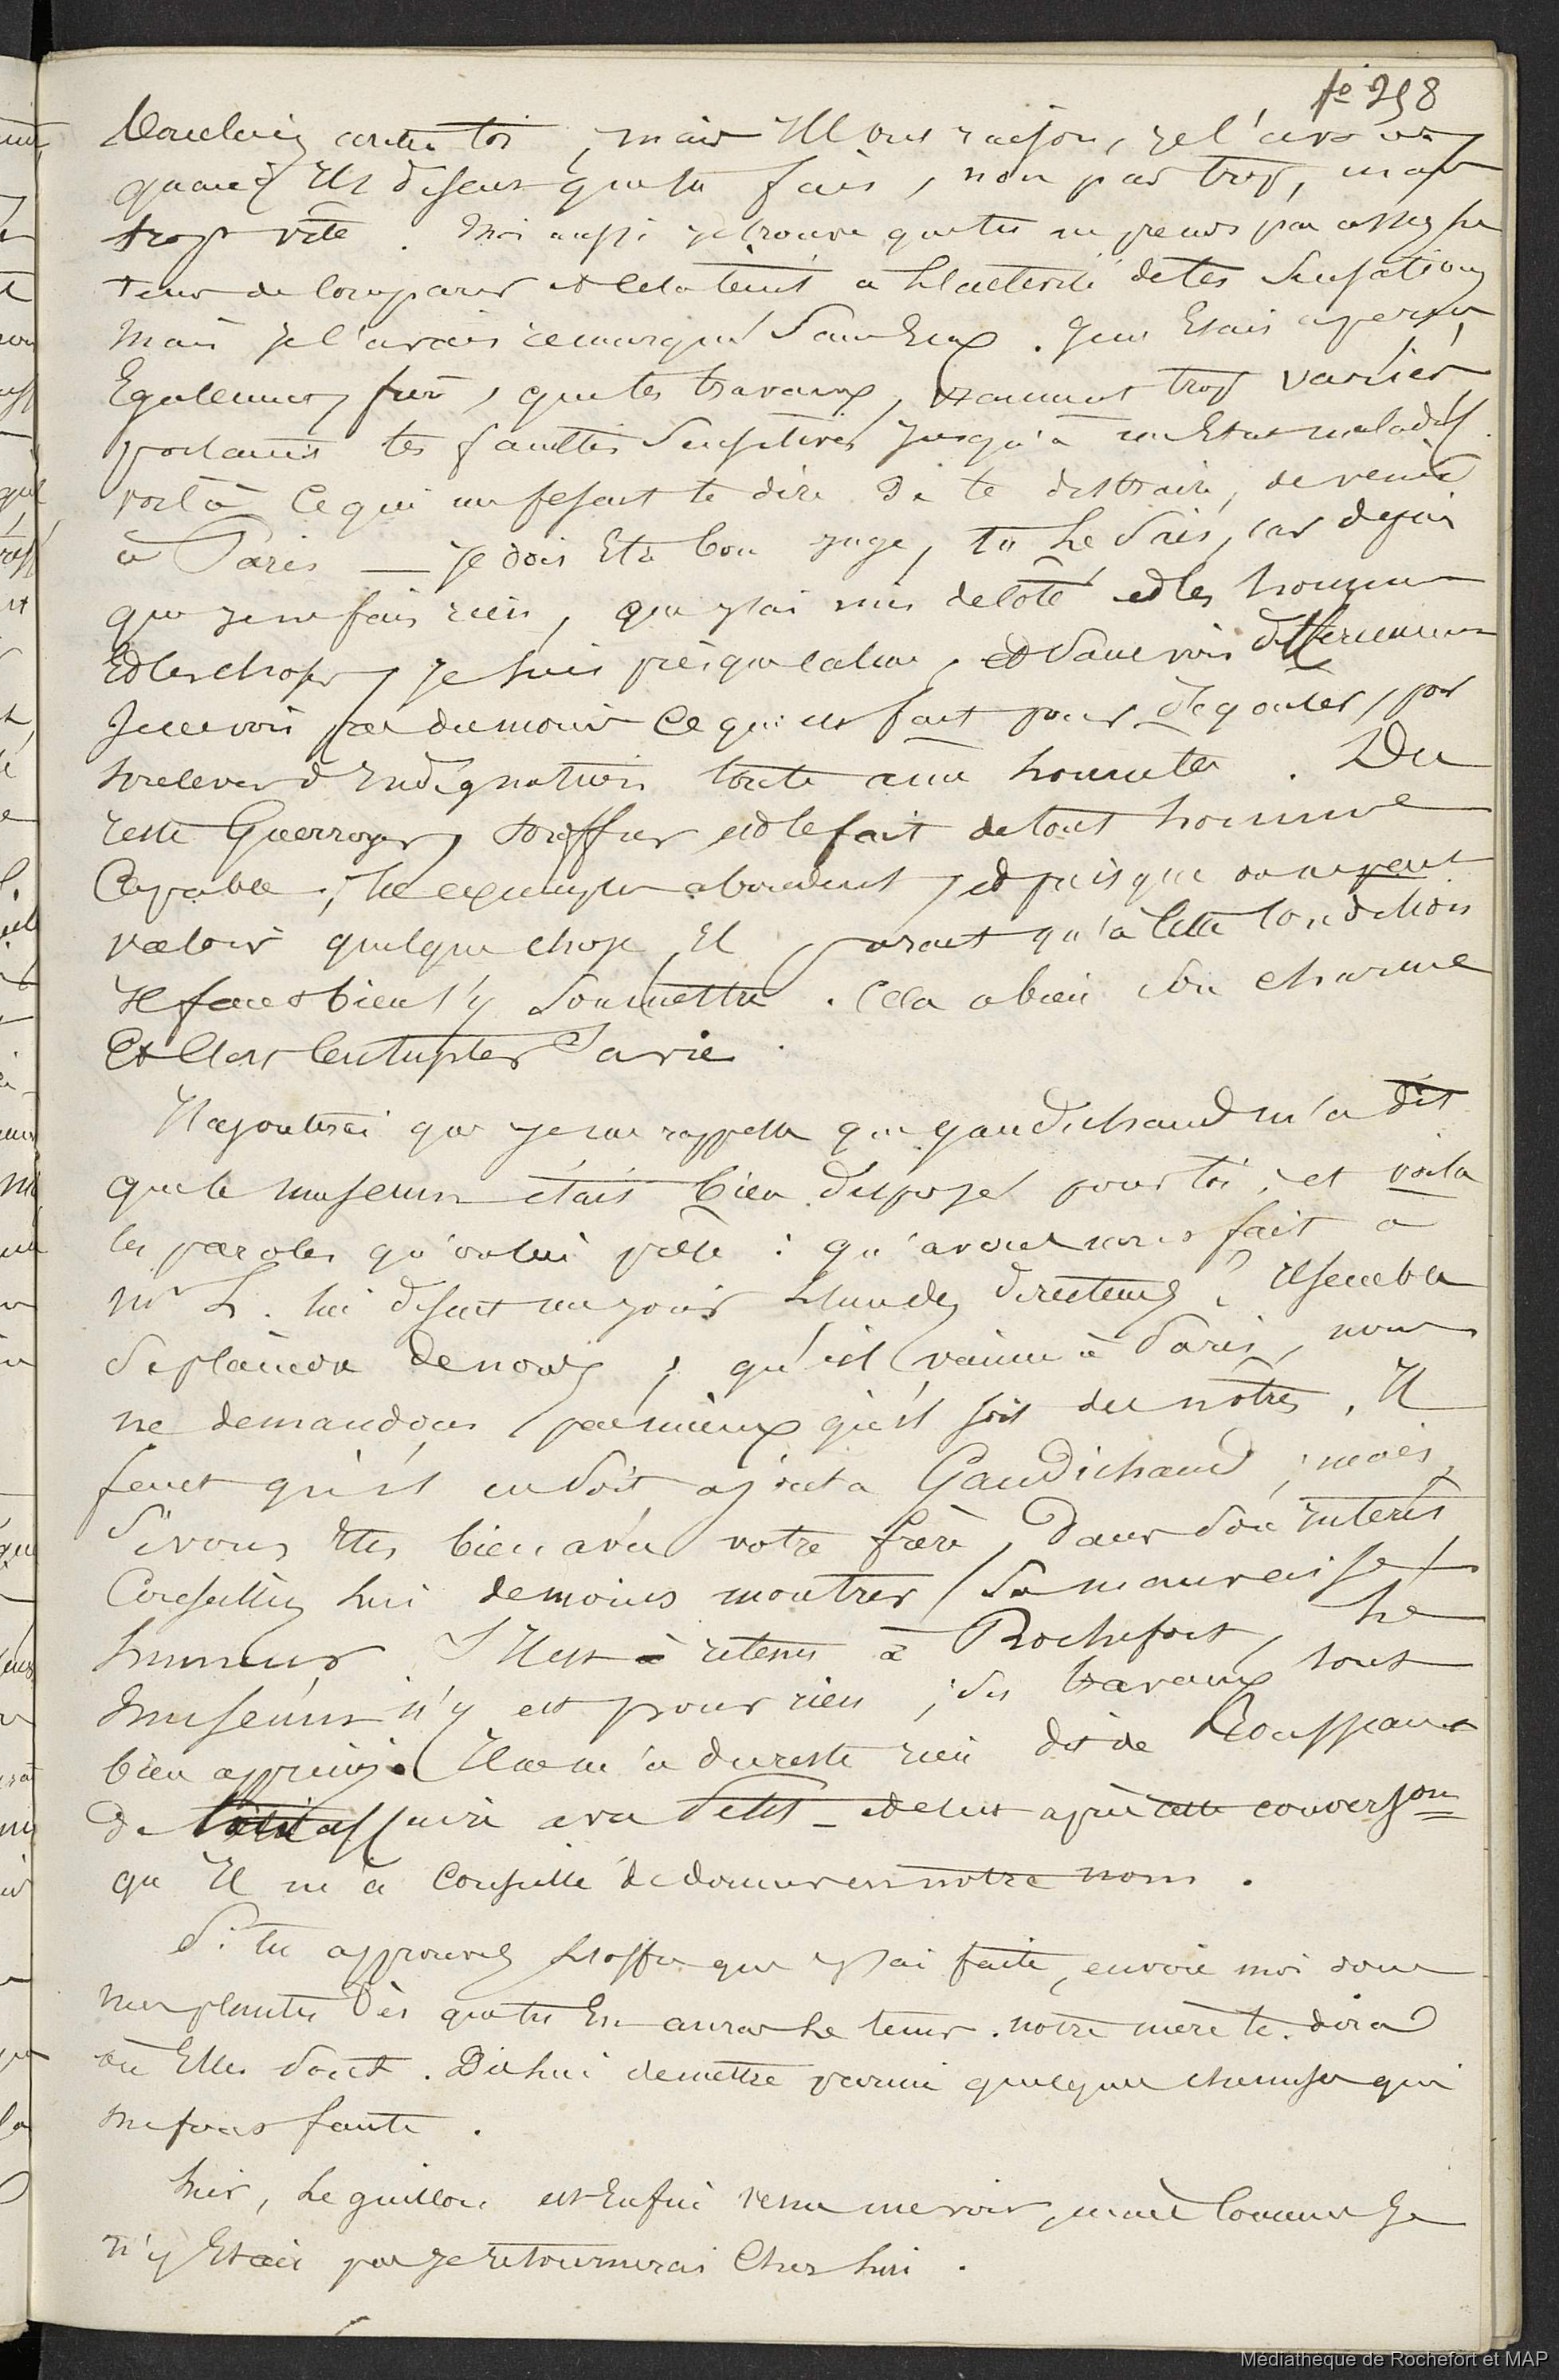 fo 258
contre toi, mais Ils ont raison, je l'avoue
quand Ils disent que tu fais, non pas trop, mais
trop vite. Moi aussi je trouve que tu ne prends pas assez le
tems de comparer et cela tient à l'activité de tes sensations
Mais je l'avais remarqué sans Eux. Je m'Etais aperçu
Egalement que tes travaux, vraiment trop variés,
portaient tes facultés sensitives jusqu'à un Etat maladif.
voilà ce qui me fesait te dire de te distraire, de venir
à Paris — je dois Etre bon juge, tu le sais, car depuis
que je ne fais rien, que j'ai mis de côté et les hommes
Et les choses, je suis presque calme, et sans voir différemment
Je ne vois pas du moins ce qui est fait pour dégouter, pour
soulever d'Indignation toute ame honnete. Du
reste Guerroyer, souffrir est le fait de tout homme
Capable; les exemples abondent, et puisque on ne peut
valoir quelque chose Il parait qu'à cette condition
Il faut bien s'y soumettre. Cela a bien son charme
Et c'est centupler sa vie.
J'ajouterai que je me rappelle que Gaudichaud m'a dit
que le museum était bien disposé pour toi, et voila
les paroles qu'on lui prête : qu'avons nous fait à
Mr L. lui disait un jour l'un des directeurs ? Il semble
se plaindre de nous; qu'il vienne à Paris, nous
ne demandons pas mieux qu'il soit des notres. Il
faut qu'il en soit ajouta Gaudichaud; mais,
si vous Etes bien avec votre frère, dans son interêt,
Conseillez lui de moins montrer sa mauvaise
humeur. S'Il est à retenu à Rochefort, le
museum n'y est pour rien; ses travaux sont
bien appréciés. Il ne m'a du reste rien dit de Rousseau
de affaire avec Petit _ et c'est après cette conversson
qu'Il m'a conseillé de donner en notre nom.
Si tu approuves l'offre que j'ai faite, envoie moi donc
mes plantes dès que tu En auras le tems. notre mère te dira
où Elles sont. Dis lui de mettre parmi quelques chemises qui
me font faute.
hier, Leguillou est Enfin venu me voir, mais comme Je
n'y Etais pas je retournerai Chez lui.
Médiathèque de Rochefort et MAP